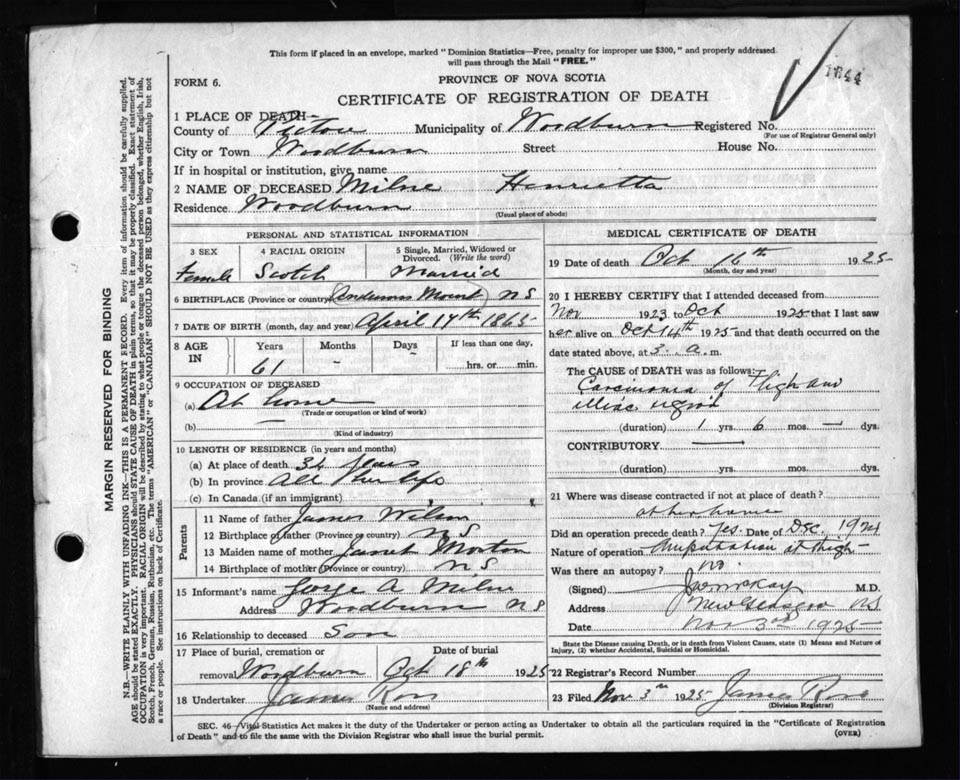 This form if placed in an envelope, marked "Dominion Statistics—Free, penalty for improper use $300," and properly addressed
will pass through the Mail "FREE."
1844
FORM 6.
PROVINCE OF NOVA SCOTIA
CERTIFICATE OF REGISTRATION OF DEATH
1 PLACE OF DEATH—
County of Pictou Municipality of Woodburn Registered No.
(For use of Registrar General only)
City or Town Woodburn Street House No.
If in hospital or institution, give name
2 NAME OF DECEASED Milne Henrietta
Residence Woodburn
(Usual place of abode)
PERSONAL AND STATISTICAL INFORMATION
3 SEX 4 RACIAL ORIGIN 5 Single, Married, Widowed or
Divorced. (Write the word)
Female Scotch Married
6 BIRTHPLACE (Province or country) Andersons Mount N S
7 DATE OF BIRTH (month, day and year) April 17th 1865
8 AGE IN Years Months Days If less than one day,
61 - - hrs. or min.
9 OCCUPATION OF DECEASED
(a) At home
(Trade or occupation or kind of work)
(b) —
(Kind of industry)
10 LENGTH OF RESIDENCE (in years and months)
(a) At place of death 34 years
(b) In province All her life
(c) In Canada (if an immigrant)
Parents
11 Name of father James Wilson
12 Birthplace of father (Province or country) N S
13 Maiden name of mother Janet Morton
14 Birthplace of mother (Province or country) N S
15 Informant's name George A Milne
Address Woodburn N S
16 Relationship to deceased Son
17 Place of burial, cremation or Date of burial
removal Woodburn Oct 18th 1925
18 Undertaker James Ross
(Name and address)
MEDICAL CERTIFICATE OF DEATH
19 Date of death Oct 16th 1925
(Month, day and year)
20 I HEREBY CERTIFY that I attended deceased from
Nov 1923 to Oct 1925 that I last saw
her alive on Oct 14th 1925 and that death occurred on
date stated above, at 3 a.m.
The CAUSE of DEATH was as follows:
Carcinoma of Thigh and
illiac region
(duration) 1 yrs. 6 mos. — dys.
CONTRIBUTORY —
(duration) yrs. mos. dys.
21 Where was disease contracted if not at place of death?
at her home
Did an operation precede death? Yes. Date of Dec. 1924
Nature of operation Amputation at thigh
Was there an autopsy? no
(Signed) McKay M.D.
Address New Glasgow NS
Date Nov 3rd 1925
State the Disease causing Death, or in death from Violent Causes, state (1) Means and Nature of
Injury, (2) whether Accidental, Suicidal or Homicidal.
22 Registrar's Record Number
23 Filed Nov 3rd 1925 James Ross
(Division Registrar)
SEC. 46—Vital Statistics Act makes it the duty of the Undertaker or person acting as Undertaker to obtain all the particulars required in the "Certificate of Registration
of Death" and to file the same with the Division Registrar who shall issue the burial permit.
(OVER)
MARGIN RESERVED FOR BINDING
N.B.—WRITE PLAINLY WITH UNFADING INK—THIS IS A PERMANENT RECORD. Every item of information should be carefully supplied.
AGE should be stated EXACTLY. PHYSICIANS should STATE CAUSE OF DEATH in plain terms, so that it may be properly classified. Exact statement of
OCCUPATION is very important. RACIAL ORIGIN will be described by stating to what people or tongue the deceased person belonged, whether English, Irish,
Scotch, French, German, Russian, Ruthenian, etc. The terms "AMERICAN" or "CANADIAN" SHOULD NOT BE USED as they express citizenship but not
a race or people. See instructions on back of Certificate.